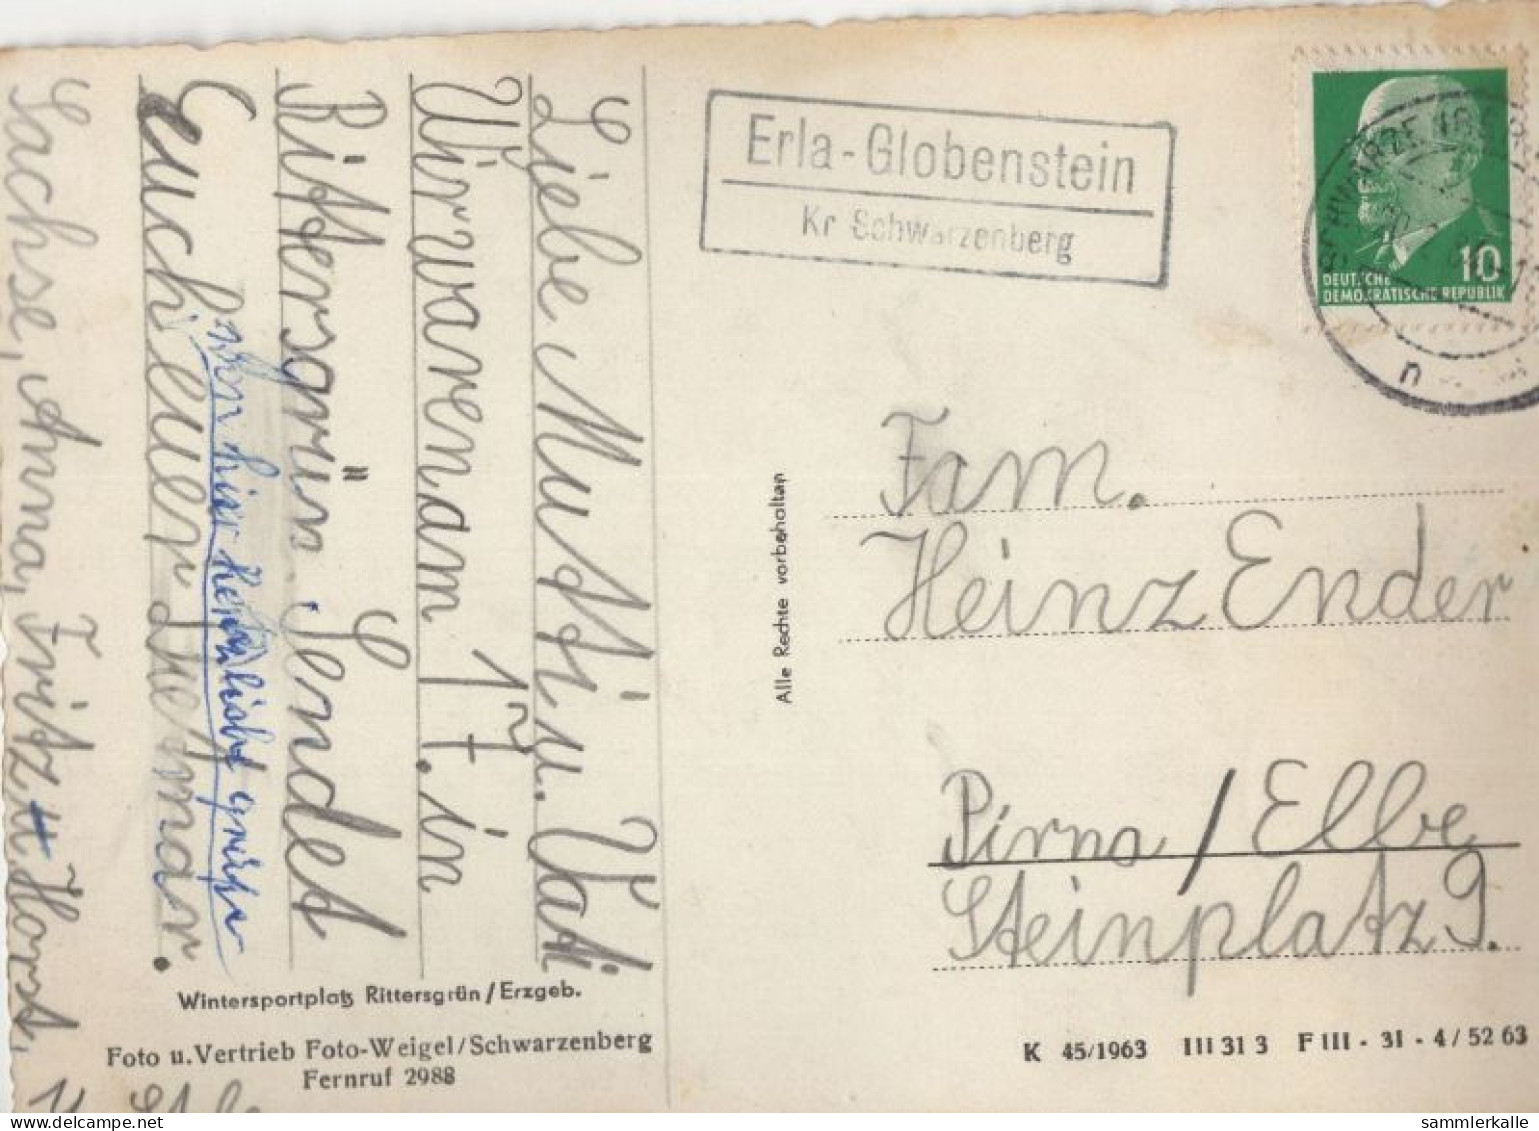 Liebe Mutti u. Vati
Wir waren am 17. in
Rittersgrün. Sendet
Euch euer Dietmar.
von hier herzliche Grüße
Sachse, Anna, Fritz u Horst,
Wintersportplatz Rittersgrün/Erzgeb.
Foto u. Vertrieb Foto-Weigel/Schwarzenberg
Fernruf 2988
Alle Rechte vorbehalten
Erla-Globenstein
Kr Schwarzenberg
10
DEUTSCHE
DEMOKRATISCHE REPUBLIK
Fam.
Heinz Ender
Pirna/Elbe
Steinplatz 9.
K 45/1963 III 31 3 F III - 31 - 4/52 63
sammlerkalle